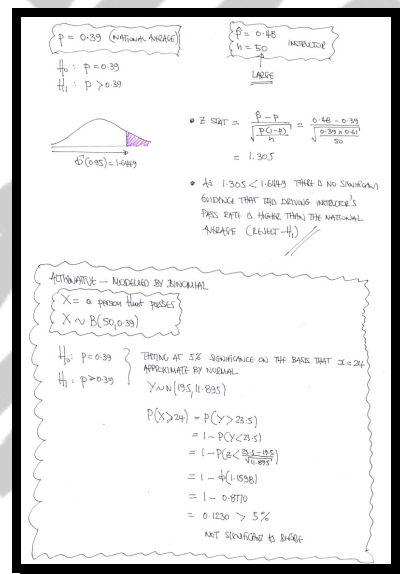 p = 0.39 (NATIONAL AVERAGE)
H₀ : p = 0.39
H₁ : p > 0.39
p̂ = 0.48
n = 50
INSTRUCTOR
LARGE
Φ⁻¹(0.95) = 1.6449
• Z STAT = (p̂ − p) / √(p(1−p)/n) = (0.48 − 0.39) / √(0.39 × 0.61 / 50)
= 1.305
• AS 1.305 < 1.6449 THERE IS NO SIGNIFICANT
EVIDENCE THAT THIS DRIVING INSTRUCTOR'S
PASS RATE IS HIGHER THAN THE NATIONAL
AVERAGE (REJECT H₁)
ALTERNATIVE — MODELLED BY BINOMIAL
X = a person that passes
X ~ B(50, 0.39)
H₀ : p = 0.39
H₁ : p > 0.39
TESTING AT 5% SIGNIFICANCE ON THE BASIS THAT x = 24
APPROXIMATE BY NORMAL
Y ~ N(19.5, 11.895)
P(X ≥ 24) = P(Y > 23.5)
= 1 − P(Y < 23.5)
= 1 − P(Z < (23.5 − 19.5)/√11.895)
= 1 − Φ(1.1598)
= 1 − 0.8770
= 0.1230 > 5%
NOT SIGNIFICANT AS BEFORE